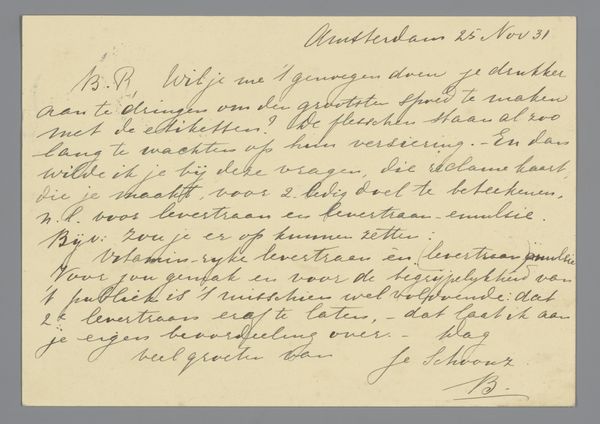 Amsterdam 25 Nov 31
B. R. Wil je me 't genoegen doen je drukker
aan te dringen om den grootsten spoed te maken
met de etiketten? De flesschen staan al zoo
lang te wachten op hun versiering. - En dan
wilde ik je bij deze vragen, die reclame kaart,
die je maakt, voor 2 ledig doel te beteekenen,
n.l. voor levertraan en levertraan-emulsie.
Bijv: zou je er op kunnen zetten:
Vitamin-ryke levertraan èn levertraan emulsie
Voor jou gemak en voor de begrijpelykheid van
't publiek is 't misschien wel voldoende: dat
2e levertraan eraf te laten, - dat laat ik aan
je eigen beoordeeling over. - Dag
veel groeten van je Schoonz.
B.